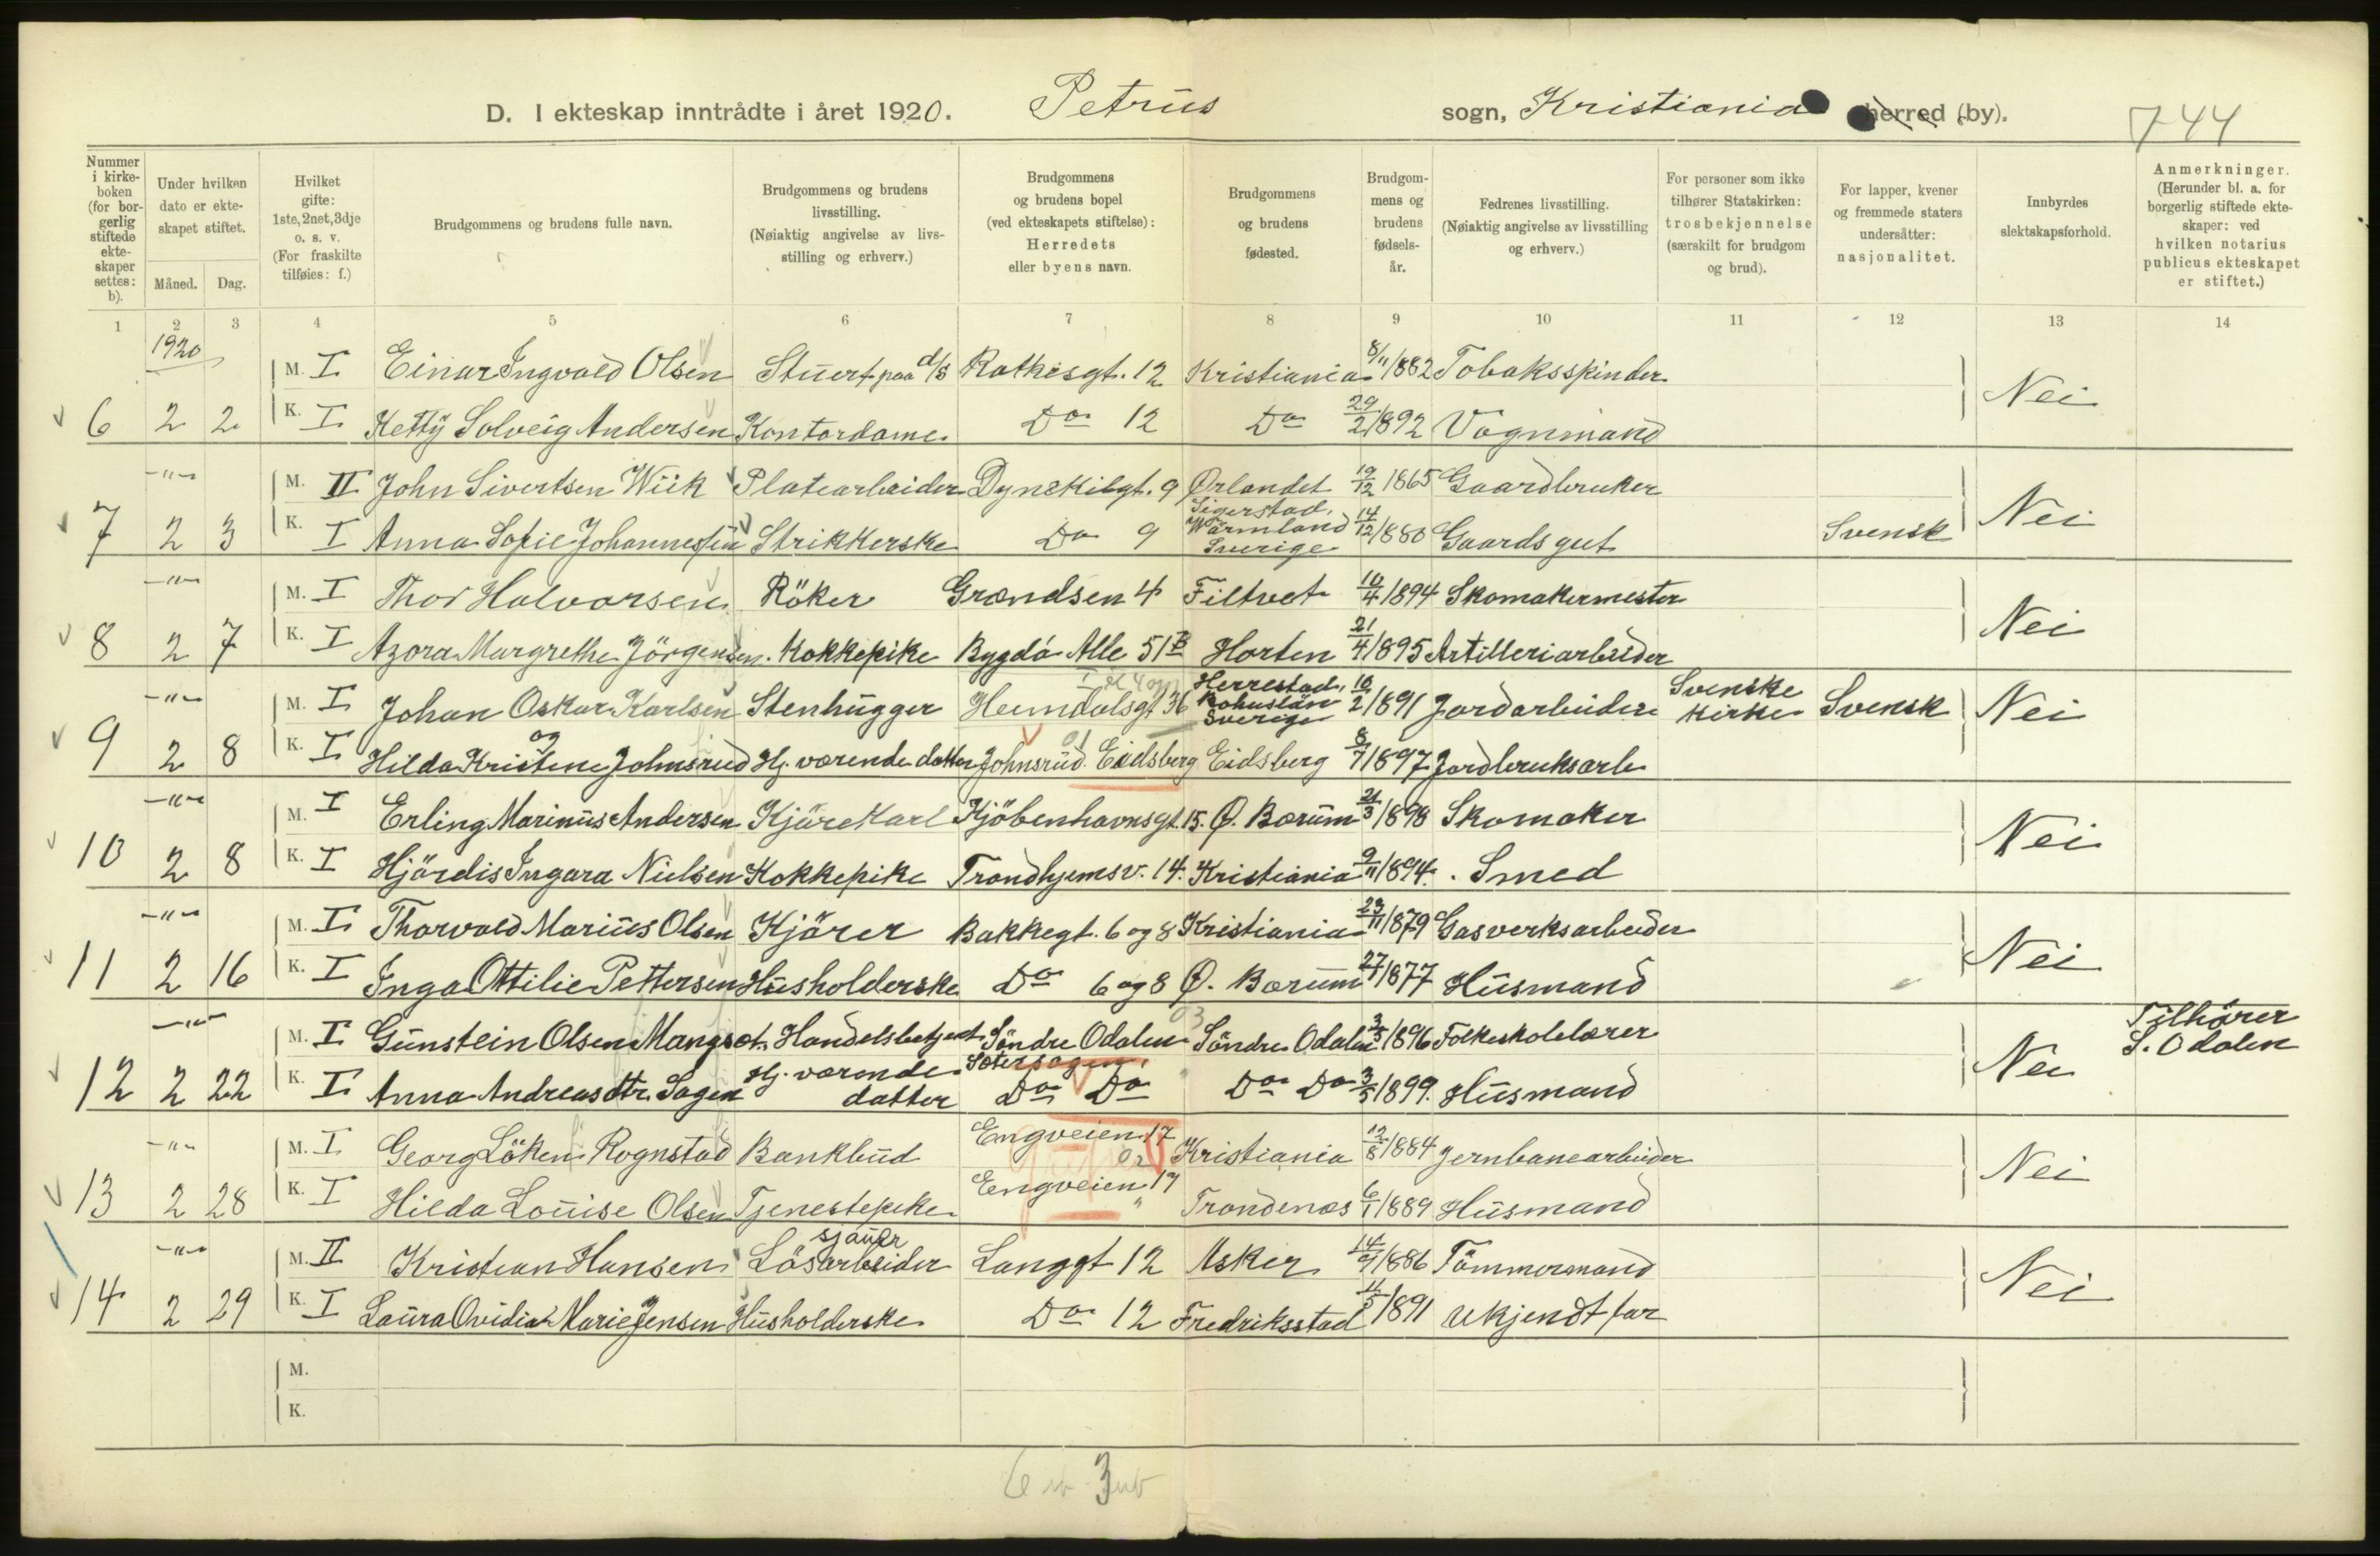 D. I ekteskap inntrådte i året 1920. Petrus sogn, Kristiania herred (by). 744
Nummer i kirke-boken (for bor-gerlig stiftede ekte-skaper settes: b).
Under hvilken dato er ekte-skapet stiftet.
Måned. Dag.
Hvilket gifte: 1ste, 2net, 3dje o. s. v. (For fraskilte tilføies: f.)
Brudgommens og brudens fulle navn.
Brudgommens og brudens livsstilling. (Nøiaktig angivelse av livs-stilling og erhverv.)
Brudgommens og brudens bopel (ved ekteskapets stiftelse): Herredets eller byens navn.
Brudgommens og brudens fødested.
Brudgom-mens og brudens fødsels-år.
Fedrenes livsstilling. (Nøiaktig angivelse av livsstilling og erhverv.)
For personer som ikke tilhører Statskirken: trosbekjennelse (særskilt for brudgom og brud).
For lapper, kvener og fremmede staters undersåtter: nasjonalitet.
Innbyrdes slektskapsforhold.
Anmerkninger. (Herunder bl. a. for borgerlig stiftede ekte-skaper: ved hvilken notarius publicus ekteskapet er stiftet.)
1 2 3 4 5 6 7 8 9 10 11 12 13 14
1920
M. I Einar Ingvald Olsen Stuert paa d/s Rathkesgt. 12 Kristiania 8/11 1882 Tobaksspinder
6 2 2 K. I Hetty Solveig Andersen Kontordame Do 12 Do 29/2 1892 Vognmand Nei
-"- M. II John Sivertsen Wiik Platearbeider Dynekilgt. 9 Ørlandet 19/12 1865 Gaardbruker
7 2 3 K. I Anna Sofie Johannessen Strikkerske Do 9 Sigerstad, Wärmland Sverige 14/12 1880 Gaardsgut Svensk Nei
-"- M. I Thor Halvorsen Röker Grændsen 4 Filtvet 10/4 1894 Skomakermester
8 2 7 K. I Azora Margrethe Jörgensen Kokkepike Bygdö Alle 51 B Horten 21/4 1895 Artilleriarbeider Nei
-"- M. I Johan Oskar Karlsen Stenhugger Heimdalsgt 36 Herrestad, Bohuslän Sverige 10/2 1891 Jordarbeider Svenske kirke Svensk Nei
og
9 2 8 K. I Hilda Kristine Johnsrud Hj. værende datter Johnsrud. Eidsberg Eidsberg 8/7 1897 Jordbruksarb
-"- M. I Erling Marinus Andersen Kjörekarl Kjöbenhavnsgt. 15. Ø. Bærum 21/3 1898 Skomaker
10 2 8 K. I Hjördis Ingara Nielsen Kokkepike Trondhjemsv. 14. Kristiania 9/11 1894. Smed Nei
-"- M. I Thorvald Marius Olsen Kjörer Bakkegt. 6 og 8 Kristiania 23/11 1879 Gasverksarbeider
11 2 16 K. I Inga Ottilie Pettersen Husholderske Do 6 og 8 Ø. Bærum 27/1 1877 Husmand Nei
-"- M. I Gunstein Olsen Mangset Handelsbetjent Söndre Odalen Söndre Odalen 3/5 1896 Folkeskolelærer Tilhører S. Odalen
12 2 22 K. I Anna Andreasdtr. Sagen Hj. værende datter Do Do Do Do 3/5 1899. Husmand Nei
-"- M. I Georg Löken Rognstad Bankbud Engveien 17 Kristiania 12/8 1884 Jernbanearbeider
13 2 28 K. I Hilda Louise Olsen Tjenestepike Engveien 17 Trondenæs 6/1 1889 Husmand Nei
sjauer
-"- M. II Kristian Hansen Lösarbeider Langgt 12 Asker 14/9 1886 Tömmermand
14 2 29 K. I Laura Ovidia Marie Jensen Husholderske Do 12 Fredriksstad 11/5 1891 Ukjendt far Nei
M.
K.